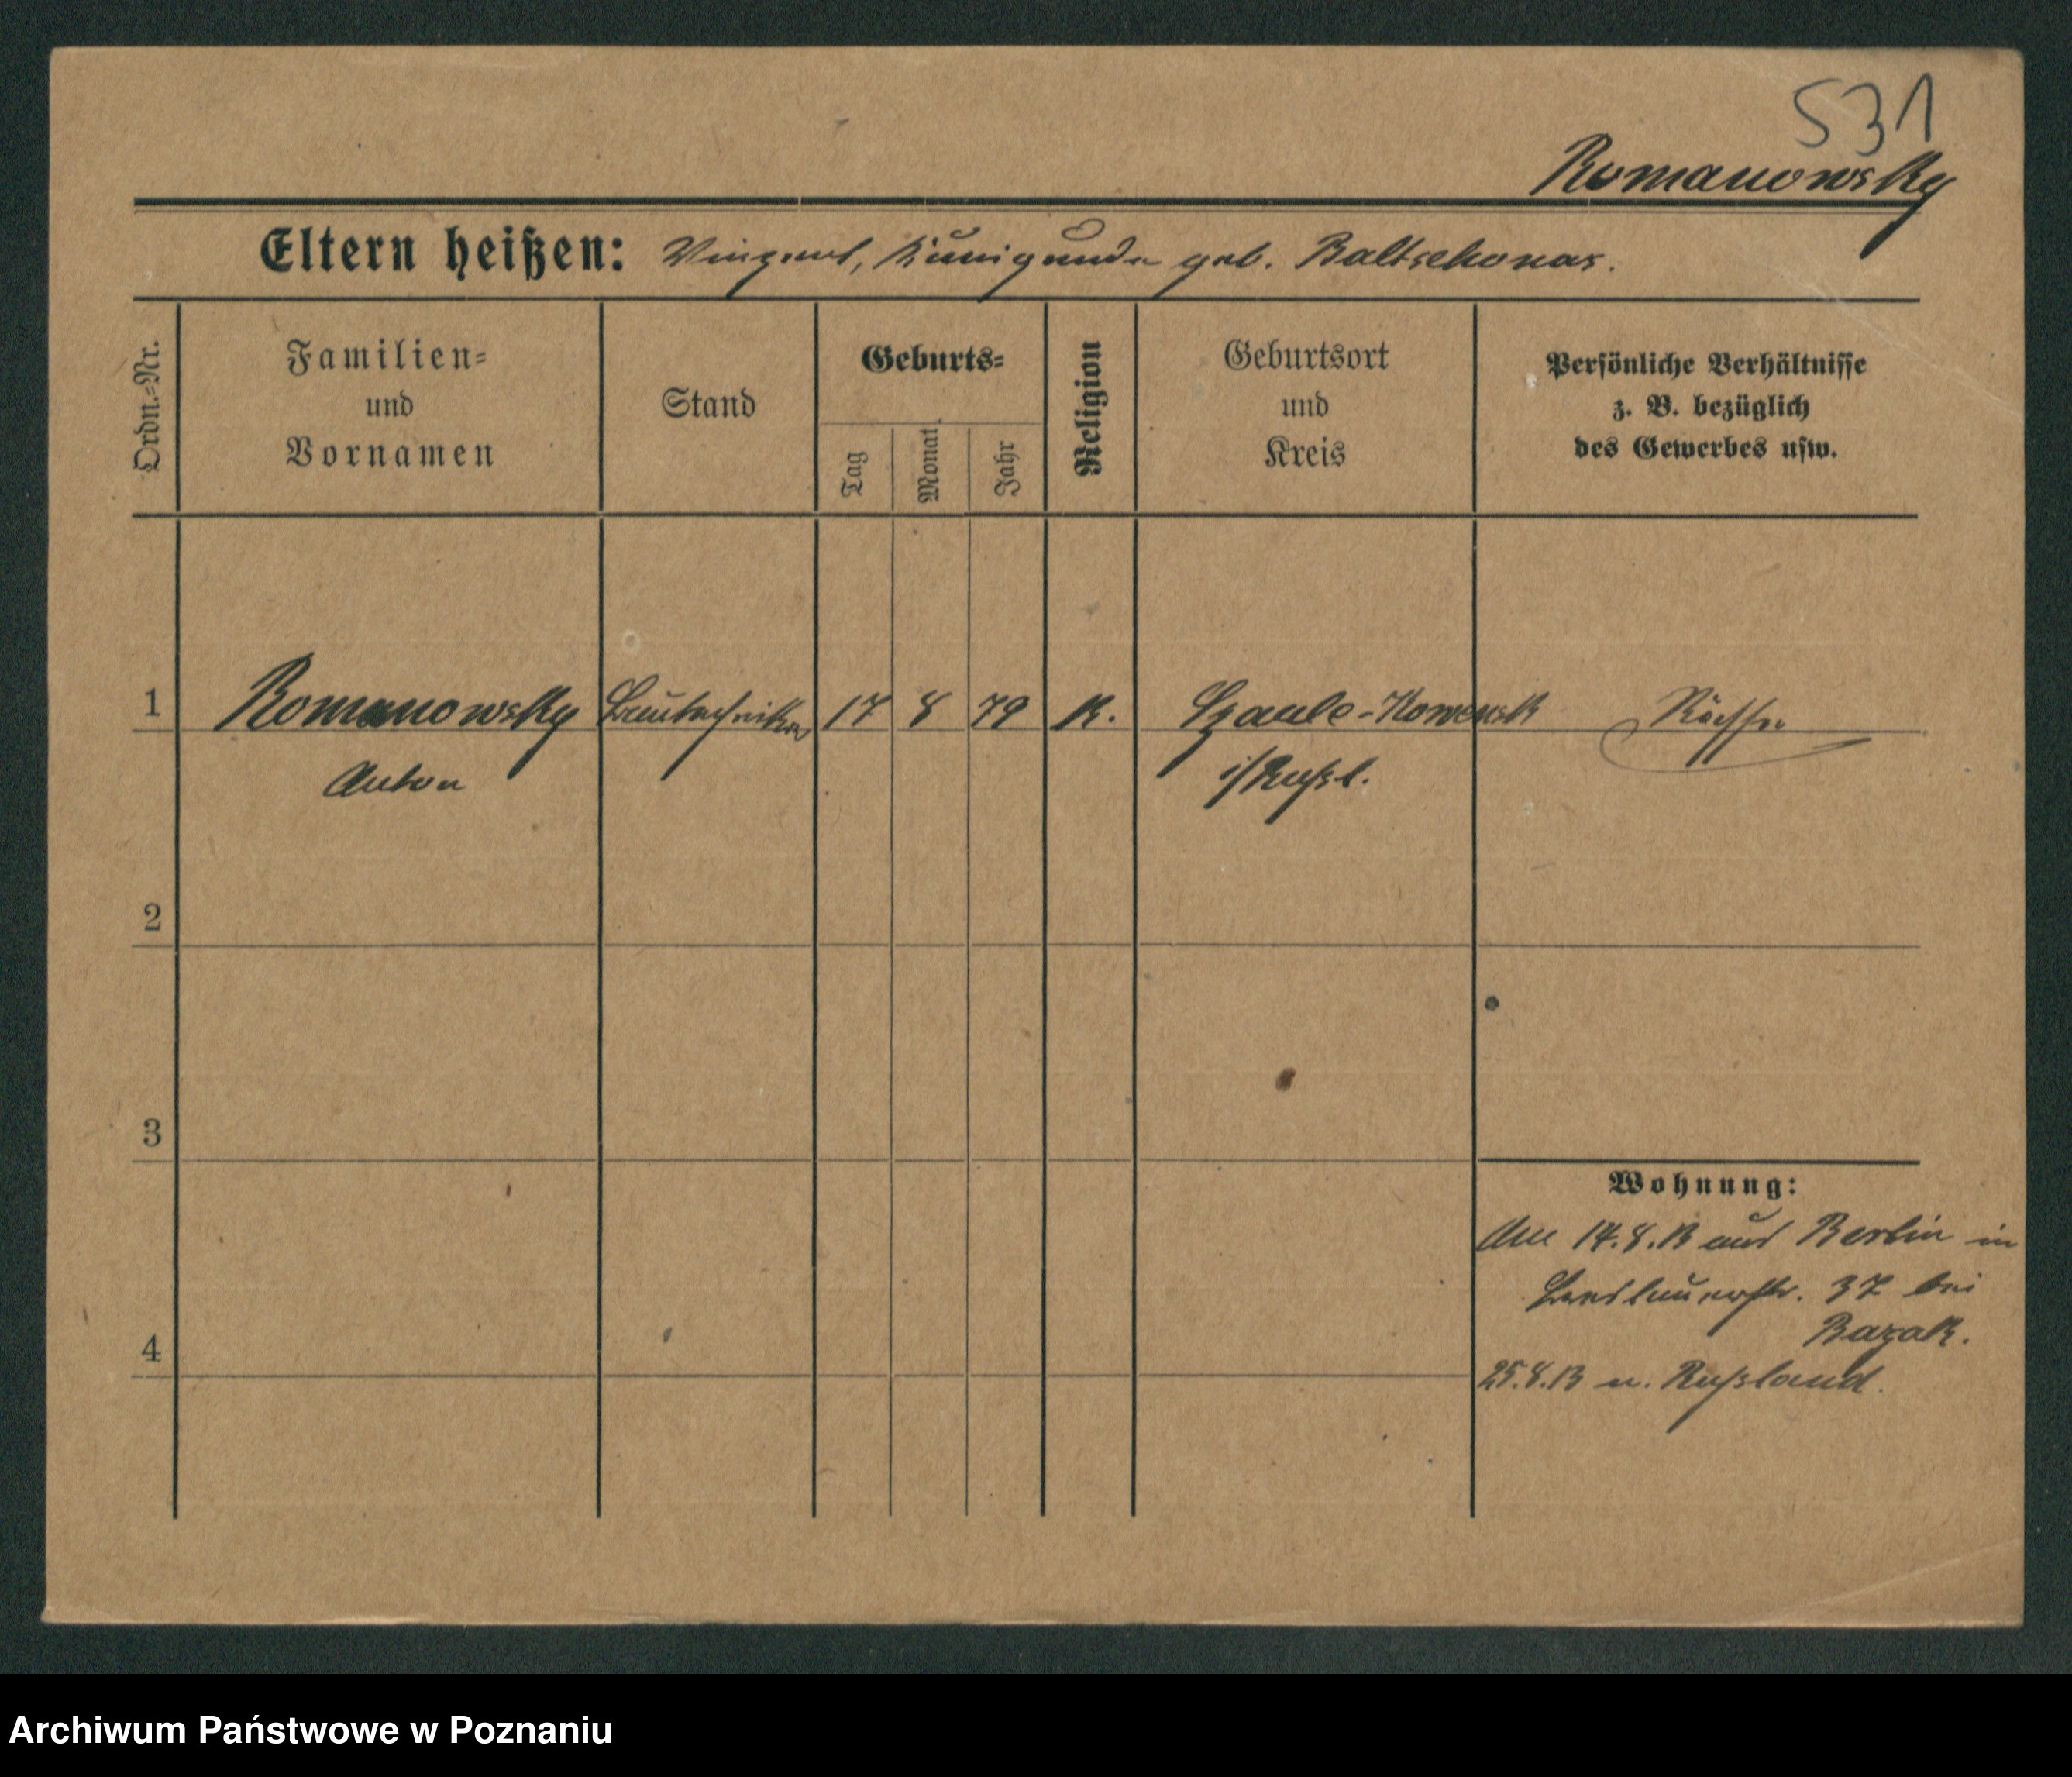 531
Romanowsky
Eltern heißen: Vinzent, Kunigunde geb. Baltschonas.
Ordn.-Nr.
Familien-
und
Vornamen
Stand
Geburts-
Tag
Monat
Jahr
Religion
Geburtsort
und
Kreis
Persönliche Verhältnisse
z. B. bezüglich
des Gewerbes usw.
1 Romanowsky Bautechniker 17 8 79 K. Szaule-Kowensk
Anton i/Rußl.
2
3
4
Wohnung:
Am 14.8.13 aus Berlin in
Breslauerstr. 37 bei
Bazak.
25.8.13 n. Rußland.
Archiwum Państwowe w Poznaniu